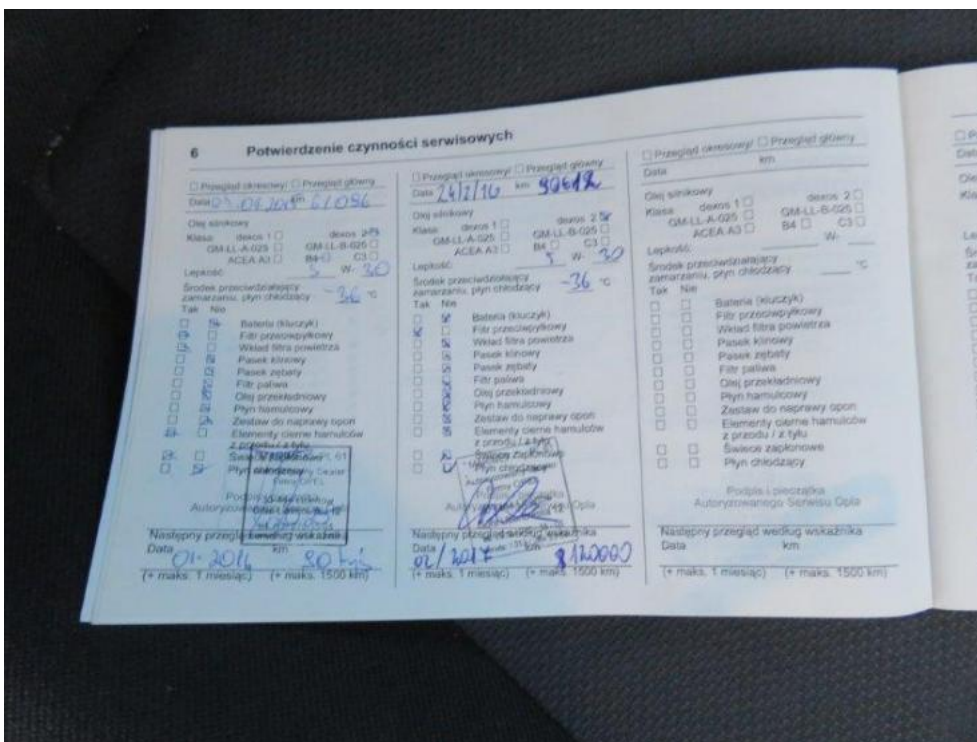 6 Potwierdzenie czynności serwisowych
☐ Przegląd okresowy/ ☐ Przegląd główny
Data 01.2015 km 61086
Olej silnikowy
Klasa dexos 1 ☐ dexos 2 ☒
GM-LL-A-025 ☐ GM-LL-B-025 ☐
ACEA A3 ☐ B4 ☐ C3 ☐
Lepkość: 5 W- 30
Środek przeciwdziałający
zamarzaniu, płyn chłodzący -36 °C
Tak Nie
Bateria (kluczyk)
Filtr przeciwpyłkowy
Wkład filtra powietrza
Pasek klinowy
Pasek zębaty
Filtr paliwa
Olej przekładniowy
Płyn hamulcowy
Zestaw do naprawy opon
Elementy cierne hamulców
z przodu / z tyłu
Świece zapłonowe
Płyn chłodzący
Następny przegląd według wskaźnika
Data 01-2016 km 90 tyś
(+ maks. 1 miesiąc) (+ maks. 1500 km)
☐ Przegląd okresowy/ ☐ Przegląd główny
Data 24/2/16 km 90612
Olej silnikowy
Klasa dexos 1 ☐ dexos 2 ☒
GM-LL-A-025 ☐ GM-LL-B-025 ☐
ACEA A3 ☐ B4 ☐ C3 ☐
Lepkość: 5 W- 30
Środek przeciwdziałający
zamarzaniu, płyn chłodzący -36 °C
Tak Nie
Bateria (kluczyk)
Filtr przeciwpyłkowy
Wkład filtra powietrza
Pasek klinowy
Pasek zębaty
Filtr paliwa
Olej przekładniowy
Płyn hamulcowy
Zestaw do naprawy opon
Elementy cierne hamulców
z przodu / z tyłu
Świece zapłonowe
Płyn chłodzący
Następny przegląd według wskaźnika
Data 02/2017 km 120000
(+ maks. 1 miesiąc) (+ maks. 1500 km)
☐ Przegląd okresowy/ ☐ Przegląd główny
Data km
Olej silnikowy
Klasa dexos 1 ☐ dexos 2 ☐
GM-LL-A-025 ☐ GM-LL-B-025 ☐
ACEA A3 ☐ B4 ☐ C3 ☐
Lepkość: W-
Środek przeciwdziałający
zamarzaniu, płyn chłodzący °C
Tak Nie
Bateria (kluczyk)
Filtr przeciwpyłkowy
Wkład filtra powietrza
Pasek klinowy
Pasek zębaty
Filtr paliwa
Olej przekładniowy
Płyn hamulcowy
Zestaw do naprawy opon
Elementy cierne hamulców
z przodu / z tyłu
Świece zapłonowe
Płyn chłodzący
Podpis i pieczątka
Autoryzowanego Serwisu Opla
Następny przegląd według wskaźnika
Data km
(+ maks. 1 miesiąc) (+ maks. 1500 km)